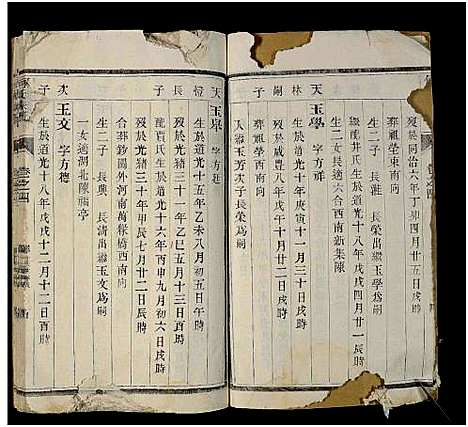 歿於同治六年丁卯四月廿五日戌時
葬祖塋東南向
生二子 長淮 長榮出繼玉學爲嗣
天林嗣子
玉學 字方祥
生於道光十年庚寅十一月十七日戌時
繼龍井氏生於道光十八年戊戌四月廿一辰時
生二女長適六合西南新集陳
歿於咸豐八年十月廿二日戌時
葬祖塋西南向
入嗣玉芳次子長榮爲嗣
天 長子
玉阜 字方廷
生於道光十五年乙未八月初五日午時
歿於光緒三十一年乙巳五月十三日酉時
龍賈氏生於道光十六年丙申九月初六日戌時
歿於光緒三十年甲辰七月廿二日辰時
合葬 外河南萬 橋西南向
生二子 長興 長清出繼玉文爲嗣
一女適湖北陳 亭
次子
玉文 字方德
生於道光十八年戊戌十二月十二日酉時
卷之四